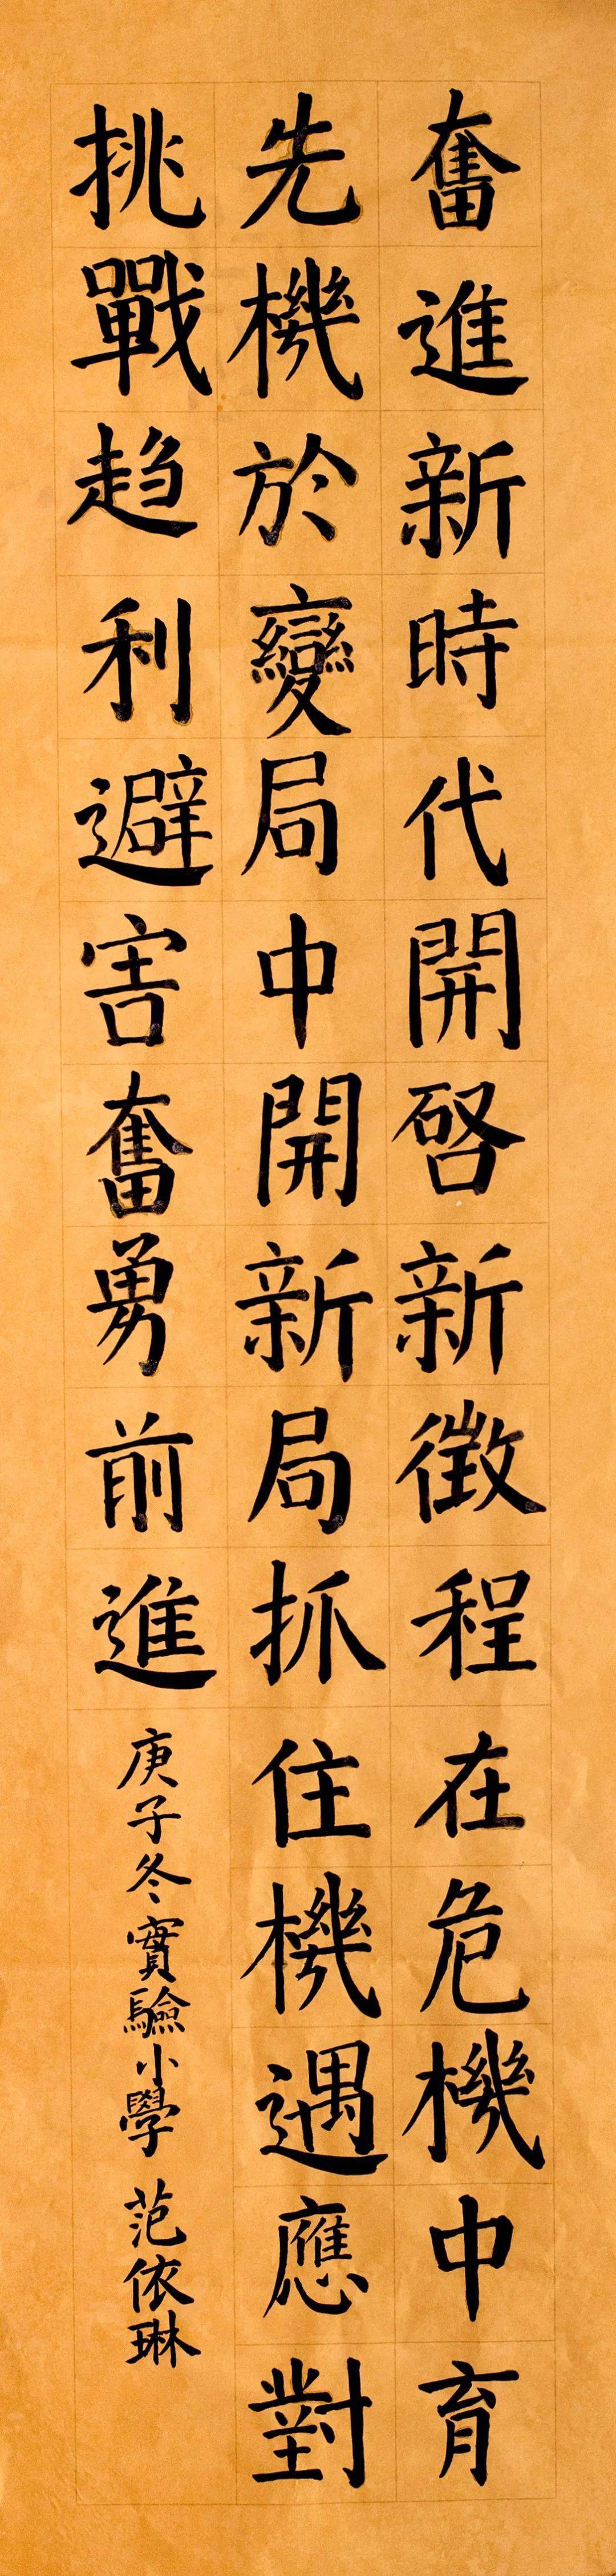 奮進新時代開啓新徵程在危機中育
先機於變局中開新局抓住機遇應對
挑戰趋利避害奮勇前進
庚子冬實驗小學 范依琳